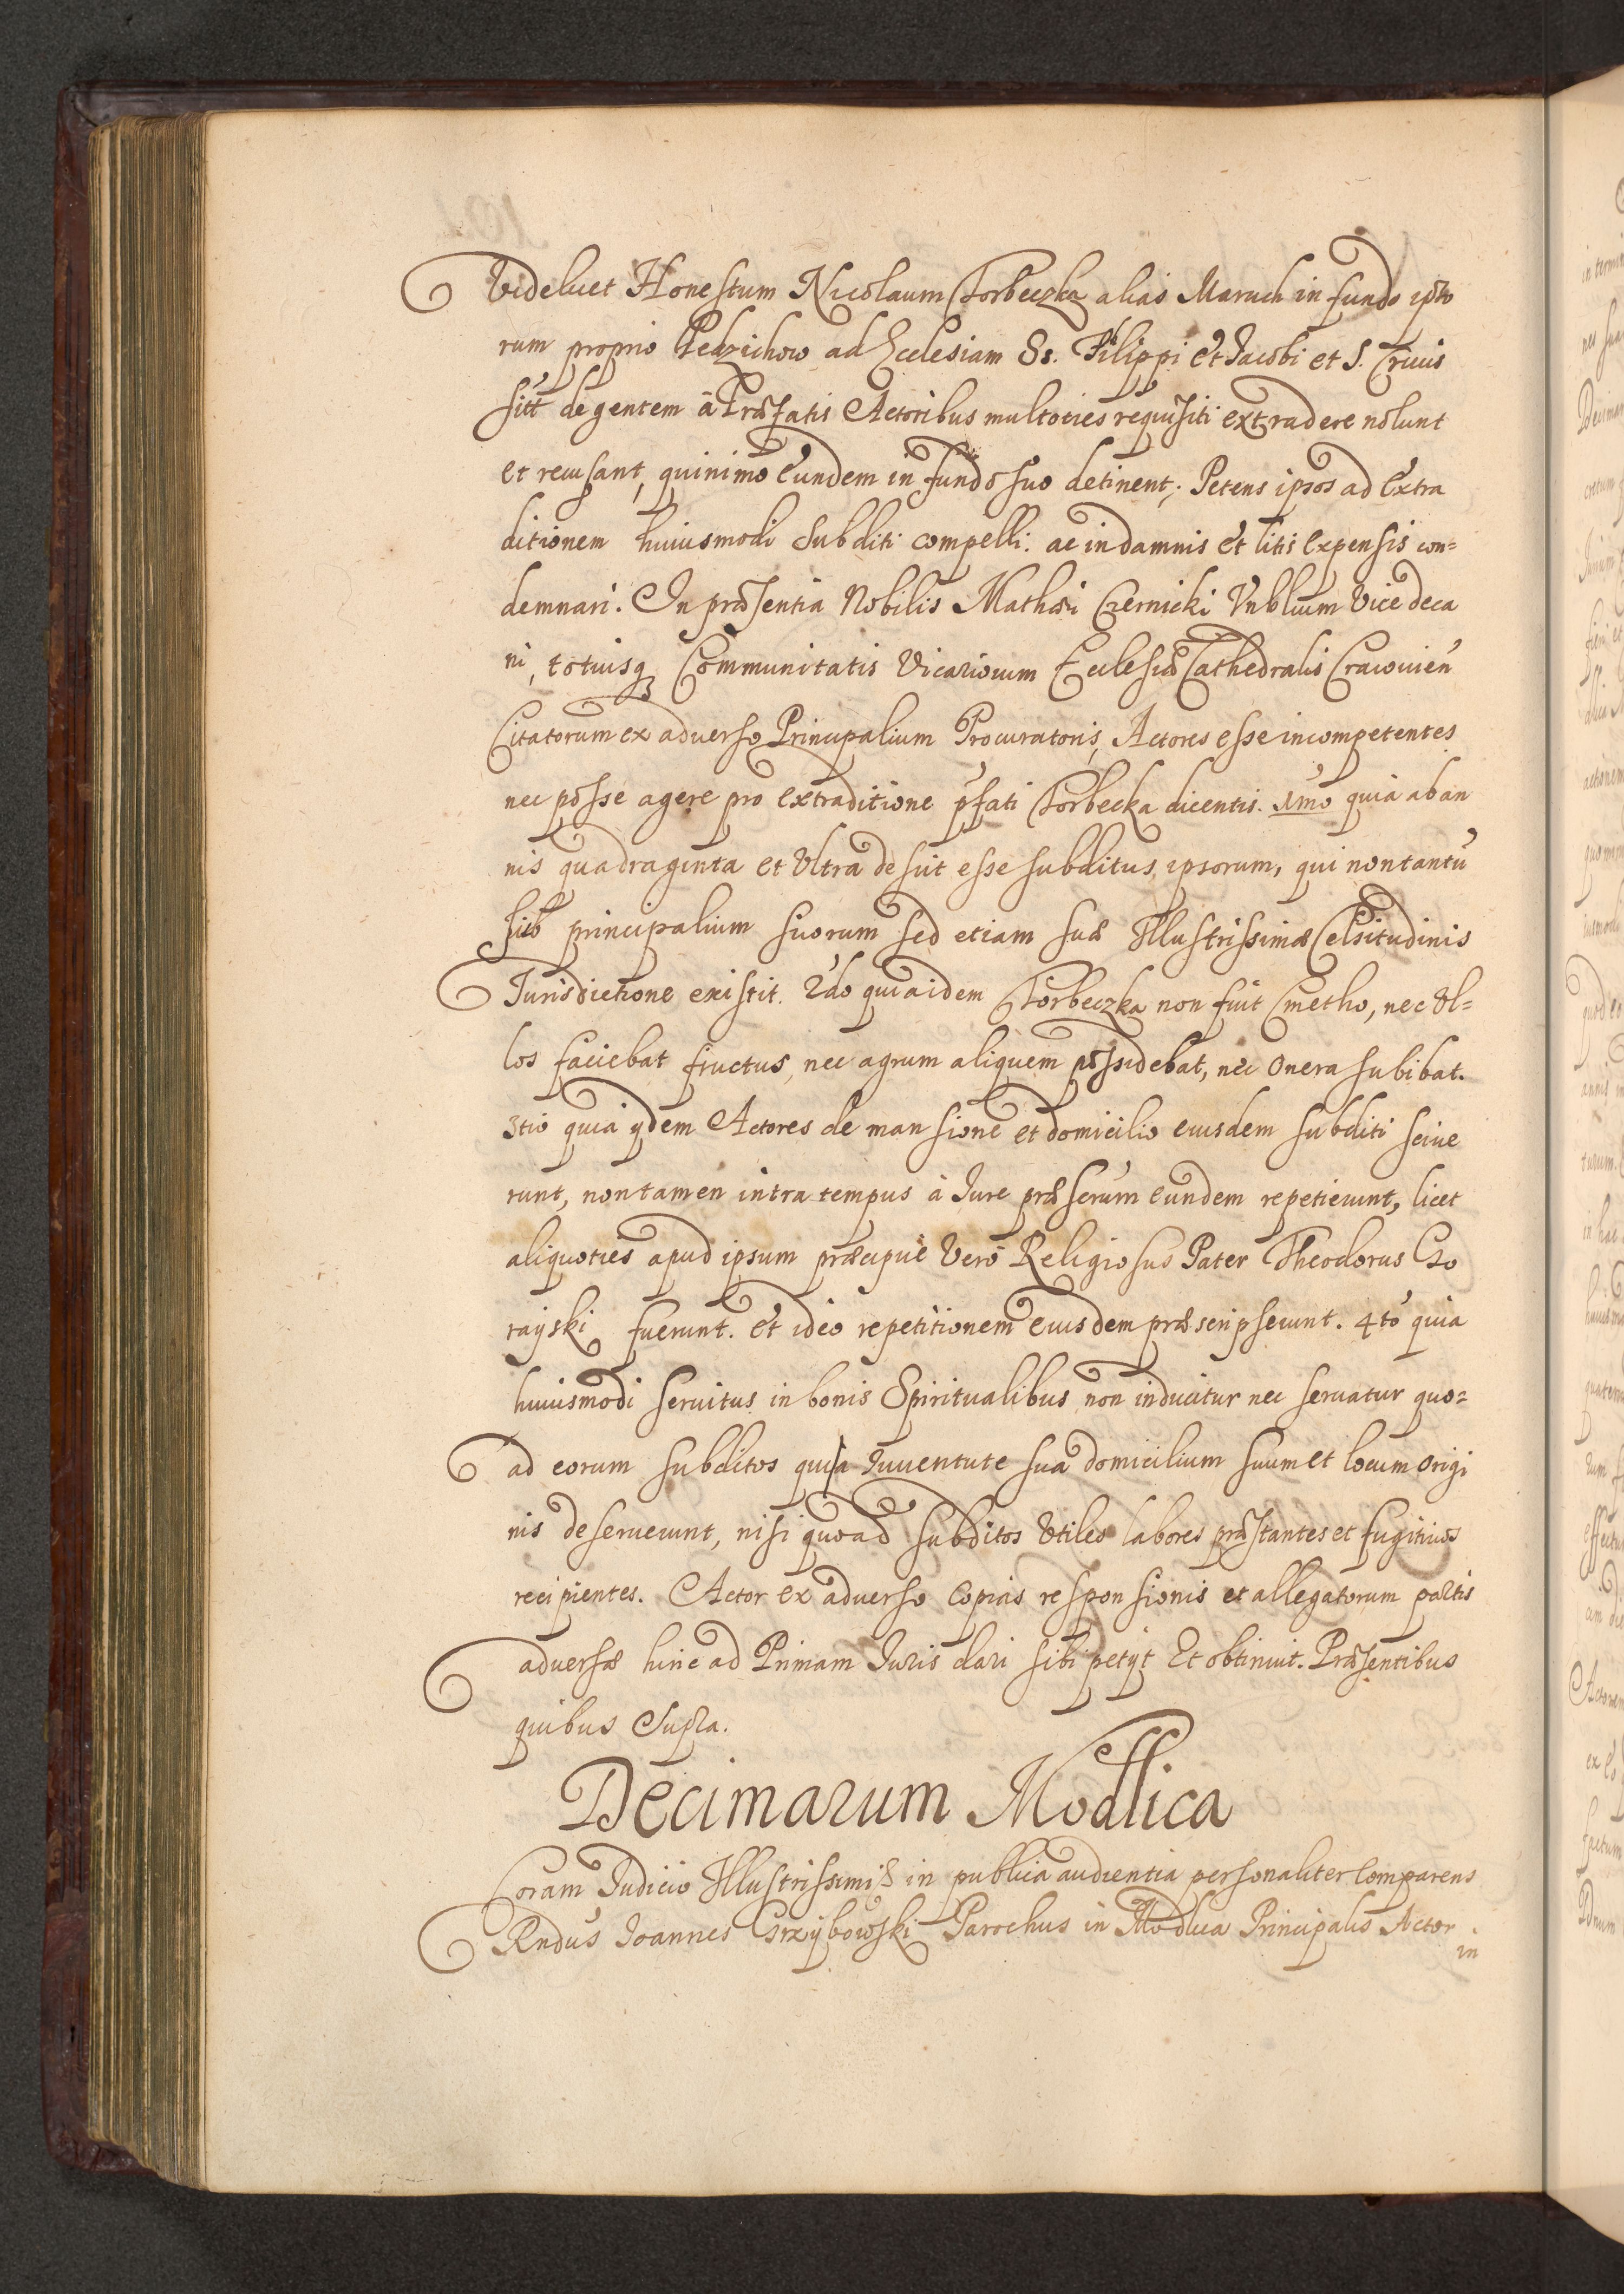 Videlicet Honestum Nicolaum Torbeczka alias Maruch in fundo ipso
rum proprio Pedzichow ad Ecclesiam Ss. Filippi et Jacobi et S. Crucis
sitt degentem à Præfatis Actoribus multoties requisiti extradere nolunt
et recusant, quinimo eundem in fundo suo detinent; Petens ipsos ad extra
ditionem huiusmodi Subditi compelli. ac in damnis et litis expensis con=
demnari. In præsentia Nobilis Mathæi Czernicki Vnblium Vice deca
ni, totiusq Communitatis Vicariorum Ecclesiæ Cathedralis Cracouien
Citatorum ex aduerso Principalium Procuratoris, Actores esse incompetentes
nec posse agere pro extraditione pfati Torbecka dicentis. 1mo quia ab an
nis quadraginta et Vltra desiit esse subditus ipsorum, qui non tantu
sub principalium suorum sed etiam suæ Illustrissimæ Celsitudinis
Jurisdictione existit. 2do quia idem Torbeczka non fuit Cmetho, nec Vl=
los faciebat fructus, nec agrum aliquem possidebat, nec onera subibat.
3tio quia ydem Actores de mansione et domicilio eiusdem subditi sciue
runt, non tamen intra tempus à Jure præscrum eundem repetierunt, licet
aliquoties apud ipsum præcipue Vero Religiosus Pater Theodorus Go
rayski fuerunt. et ideo repetitionem eiusdem præscripserunt. 4to quia
huiusmodi seruitus in bonis Spiritualibus non inducitur nec seruatur quo=
ad eorum subditos qui a Juuentute sua domicilium suum et locum origi
nis deseruerunt, nisi quoad subditos Vtiles labores præstantes et fugitiuos
recipientes. Actor ex aduerso Copias responsionis et allegatorum partis
aduersæ hinc ad Primam Juris dari sibi petyt Et obtinuit. Præsentibus
quibus Supra.
Decimarum Modlica
Coram Judicio Illustrissimi in publica audientia personaliter Comparens
Rndus Joannes Grzybowski Parochus in Modlica Principalis Actor
in